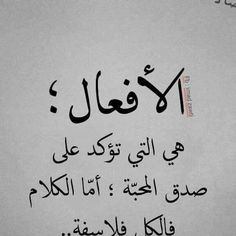 الأفعال ؛
هي التي تؤكد على
صدق المحبّة ؛ أمّا الكلام
فالكل فلاسفة..